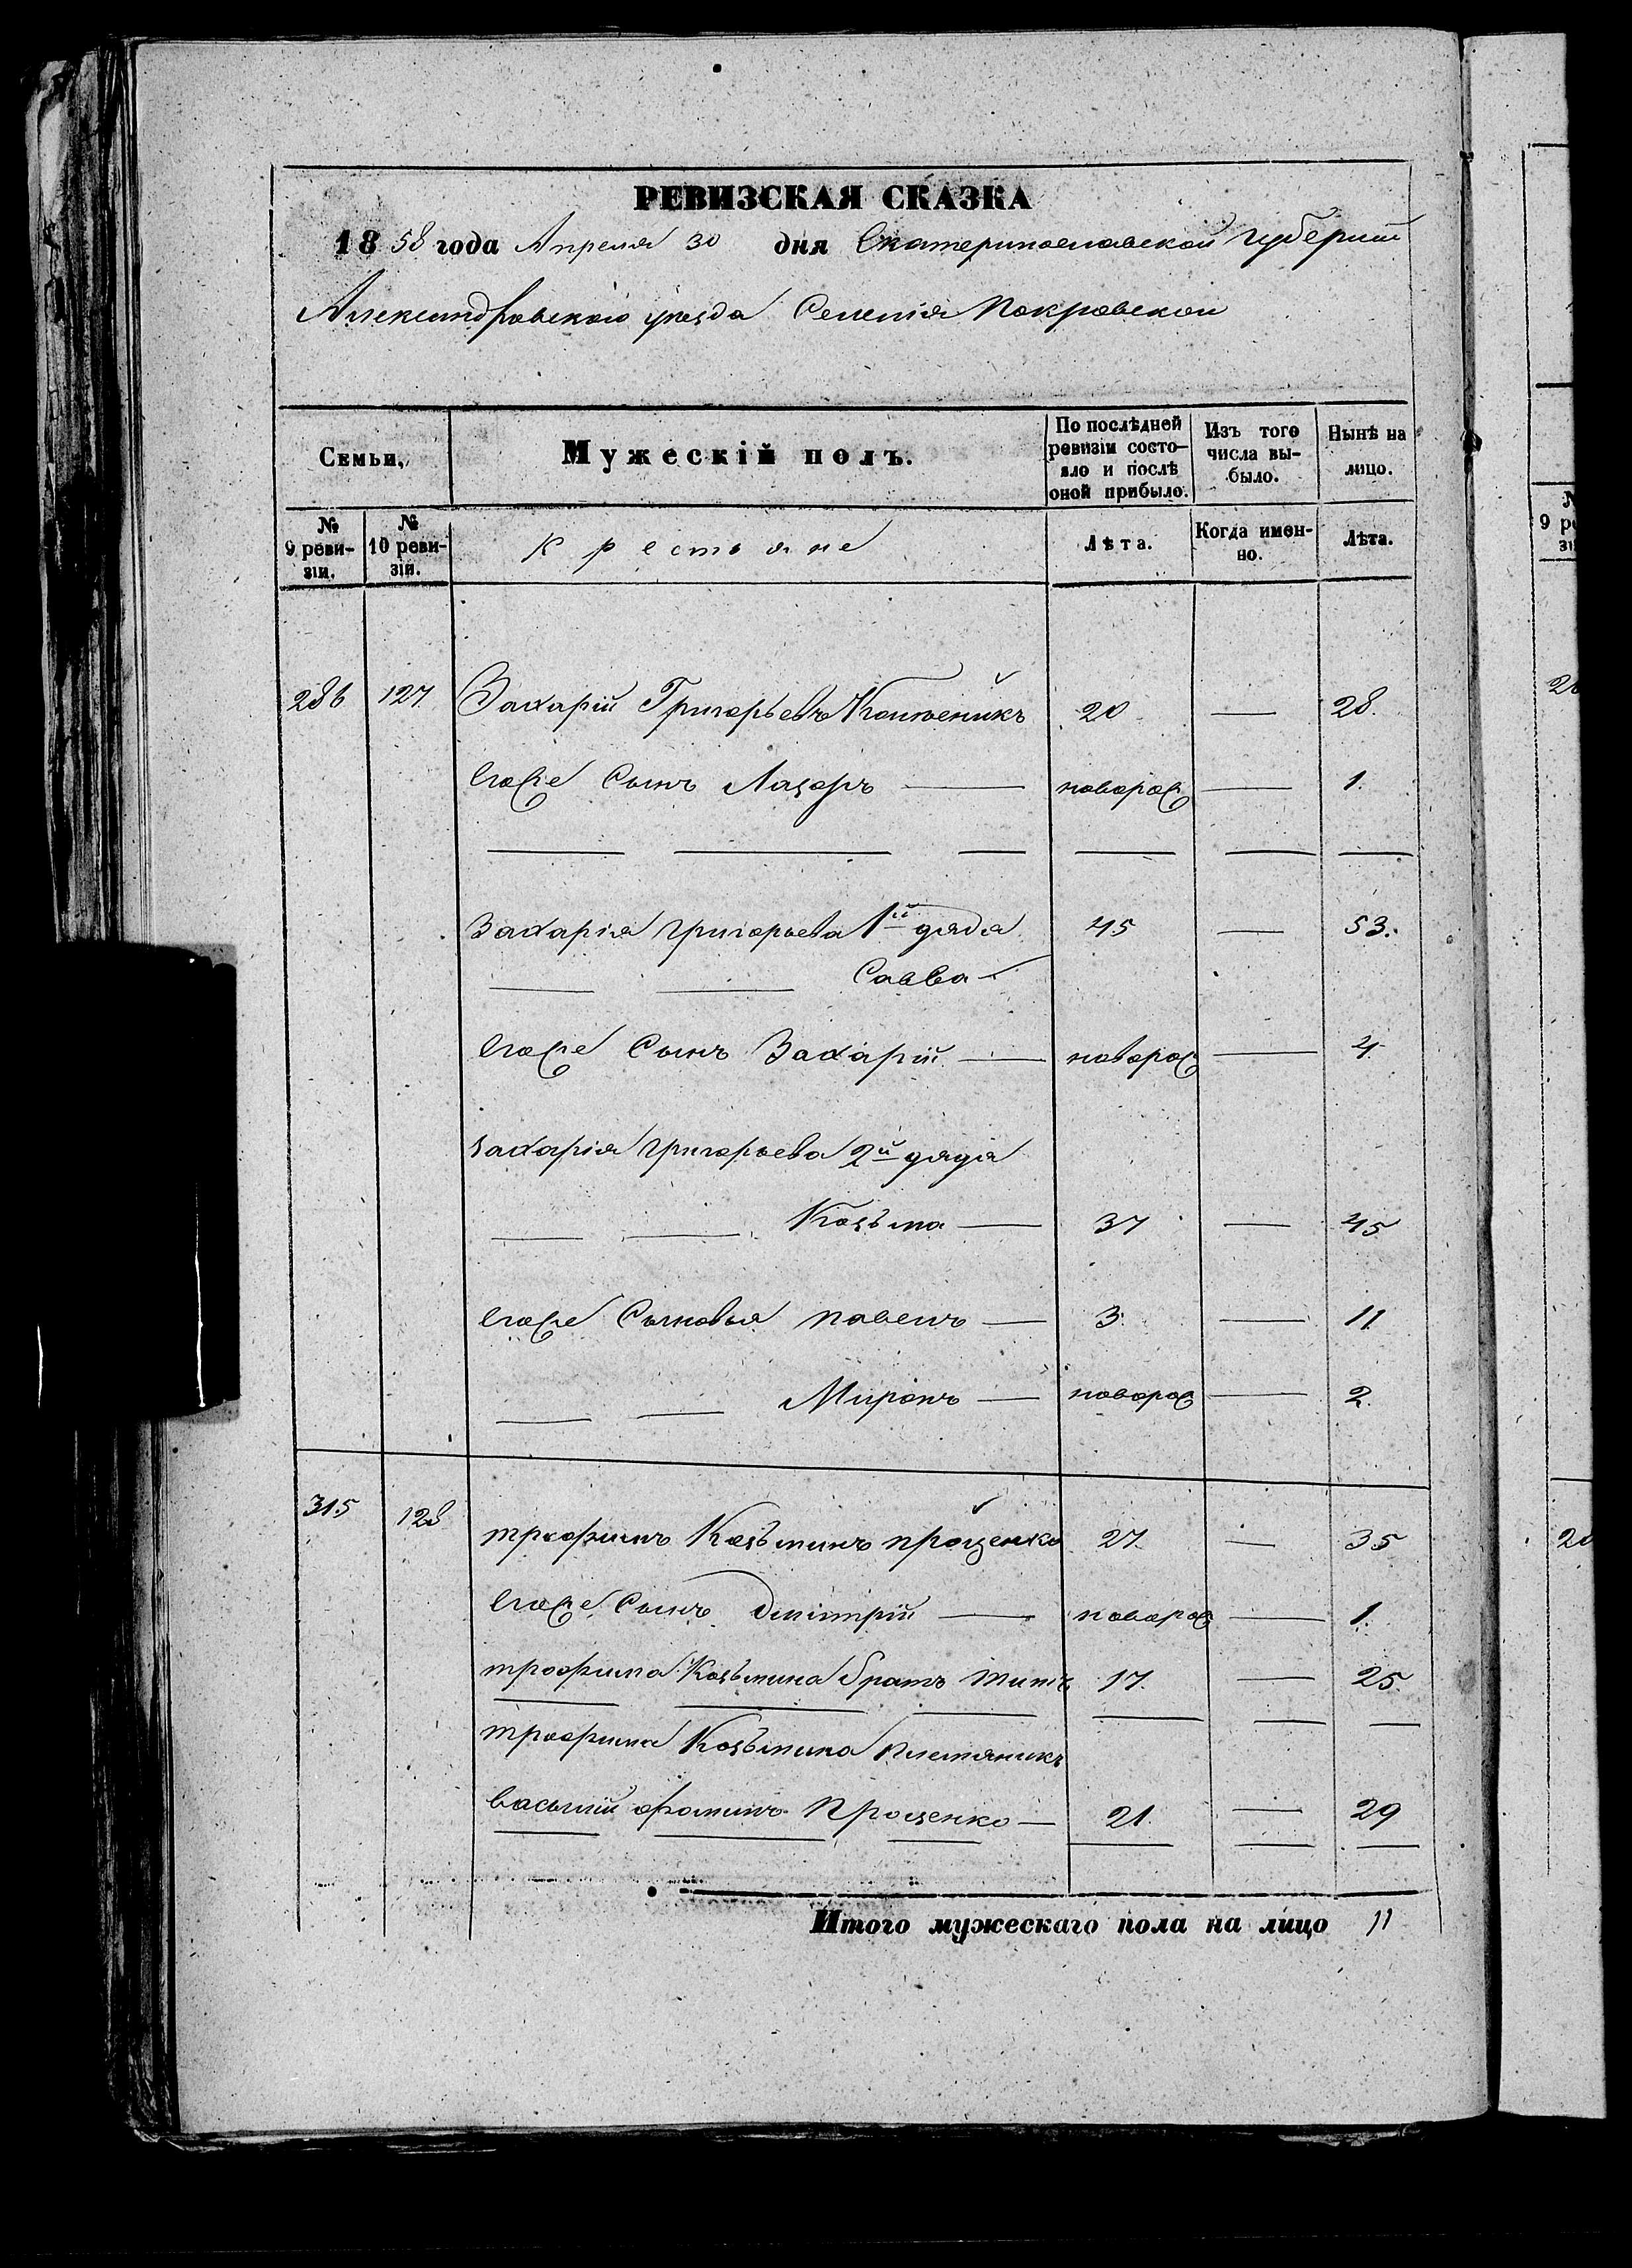 РЕВИЗСКАЯ СКАЗКА
1858 года Апреля 30 дня Екатеринославской губернии
Александровского уезда Селенія Покровскои
Семьи,
Мужескій полъ.
По послѣдней ревизіи состояло и послѣ оной прибыло.
Изъ того числа выбыло.
Нынѣ на лицо.
№ 9 ревизіи.
№ 10 ревизіи.
Крестьяне
Лѣта.
Когда именно.
Лѣта.
286 127 Захарій Григорьевъ 20 — 28.
Егоже Сынъ Лазарь — новорож — 1.
Захарія Григорьева 1й дядя 45 — 53.
Савва
Егоже Сынъ Захарій — новорож — 4
Захарія Григорьева 2й дядя
Козьма — 37 — 45
Егоже Сыновья Павелъ — 3 — 11
Миронъ — новорож — 2.
315 128 трофимъ Козьминъ проценко 27 — 35
Егоже Сынъ Дмитрій — новорож — 1.
трофима Козьмина братъ титъ 17. — 25.
трофима Козьмина племяникъ
василій фоминъ Проценко — 21. — 29
Итого мужескаго пола на лицо 11
9 ре